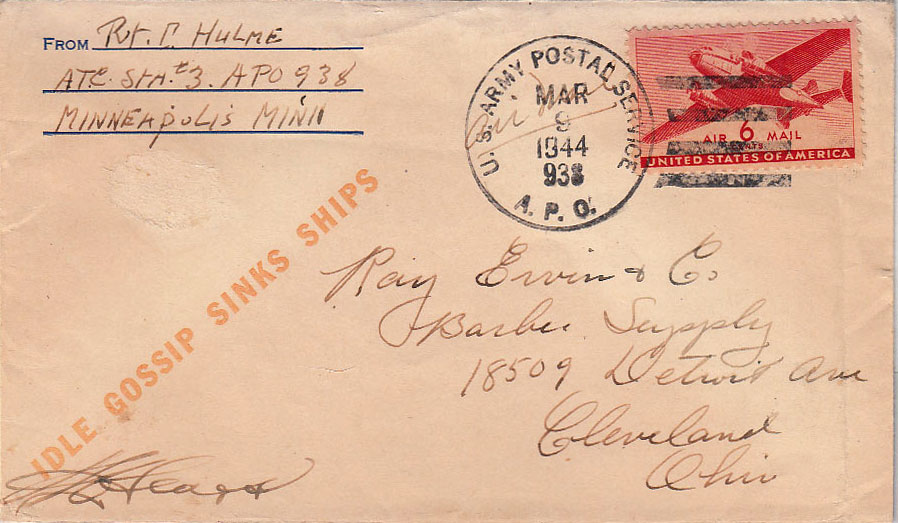 FROM Pvt. C. HULME
ATC. STA. #3. APO 938
MINNEAPOLIS MINN
U. S. ARMY POSTAL SERVICE
MAR
9
1944
938
A. P. O.
Air Mail
AIR 6 MAIL
CENTS
UNITED STATES OF AMERICA
IDLE GOSSIP SINKS SHIPS
Ray Ervin & Co.
Barber Supply
18509 Detroit Ave
Cleveland
Ohio